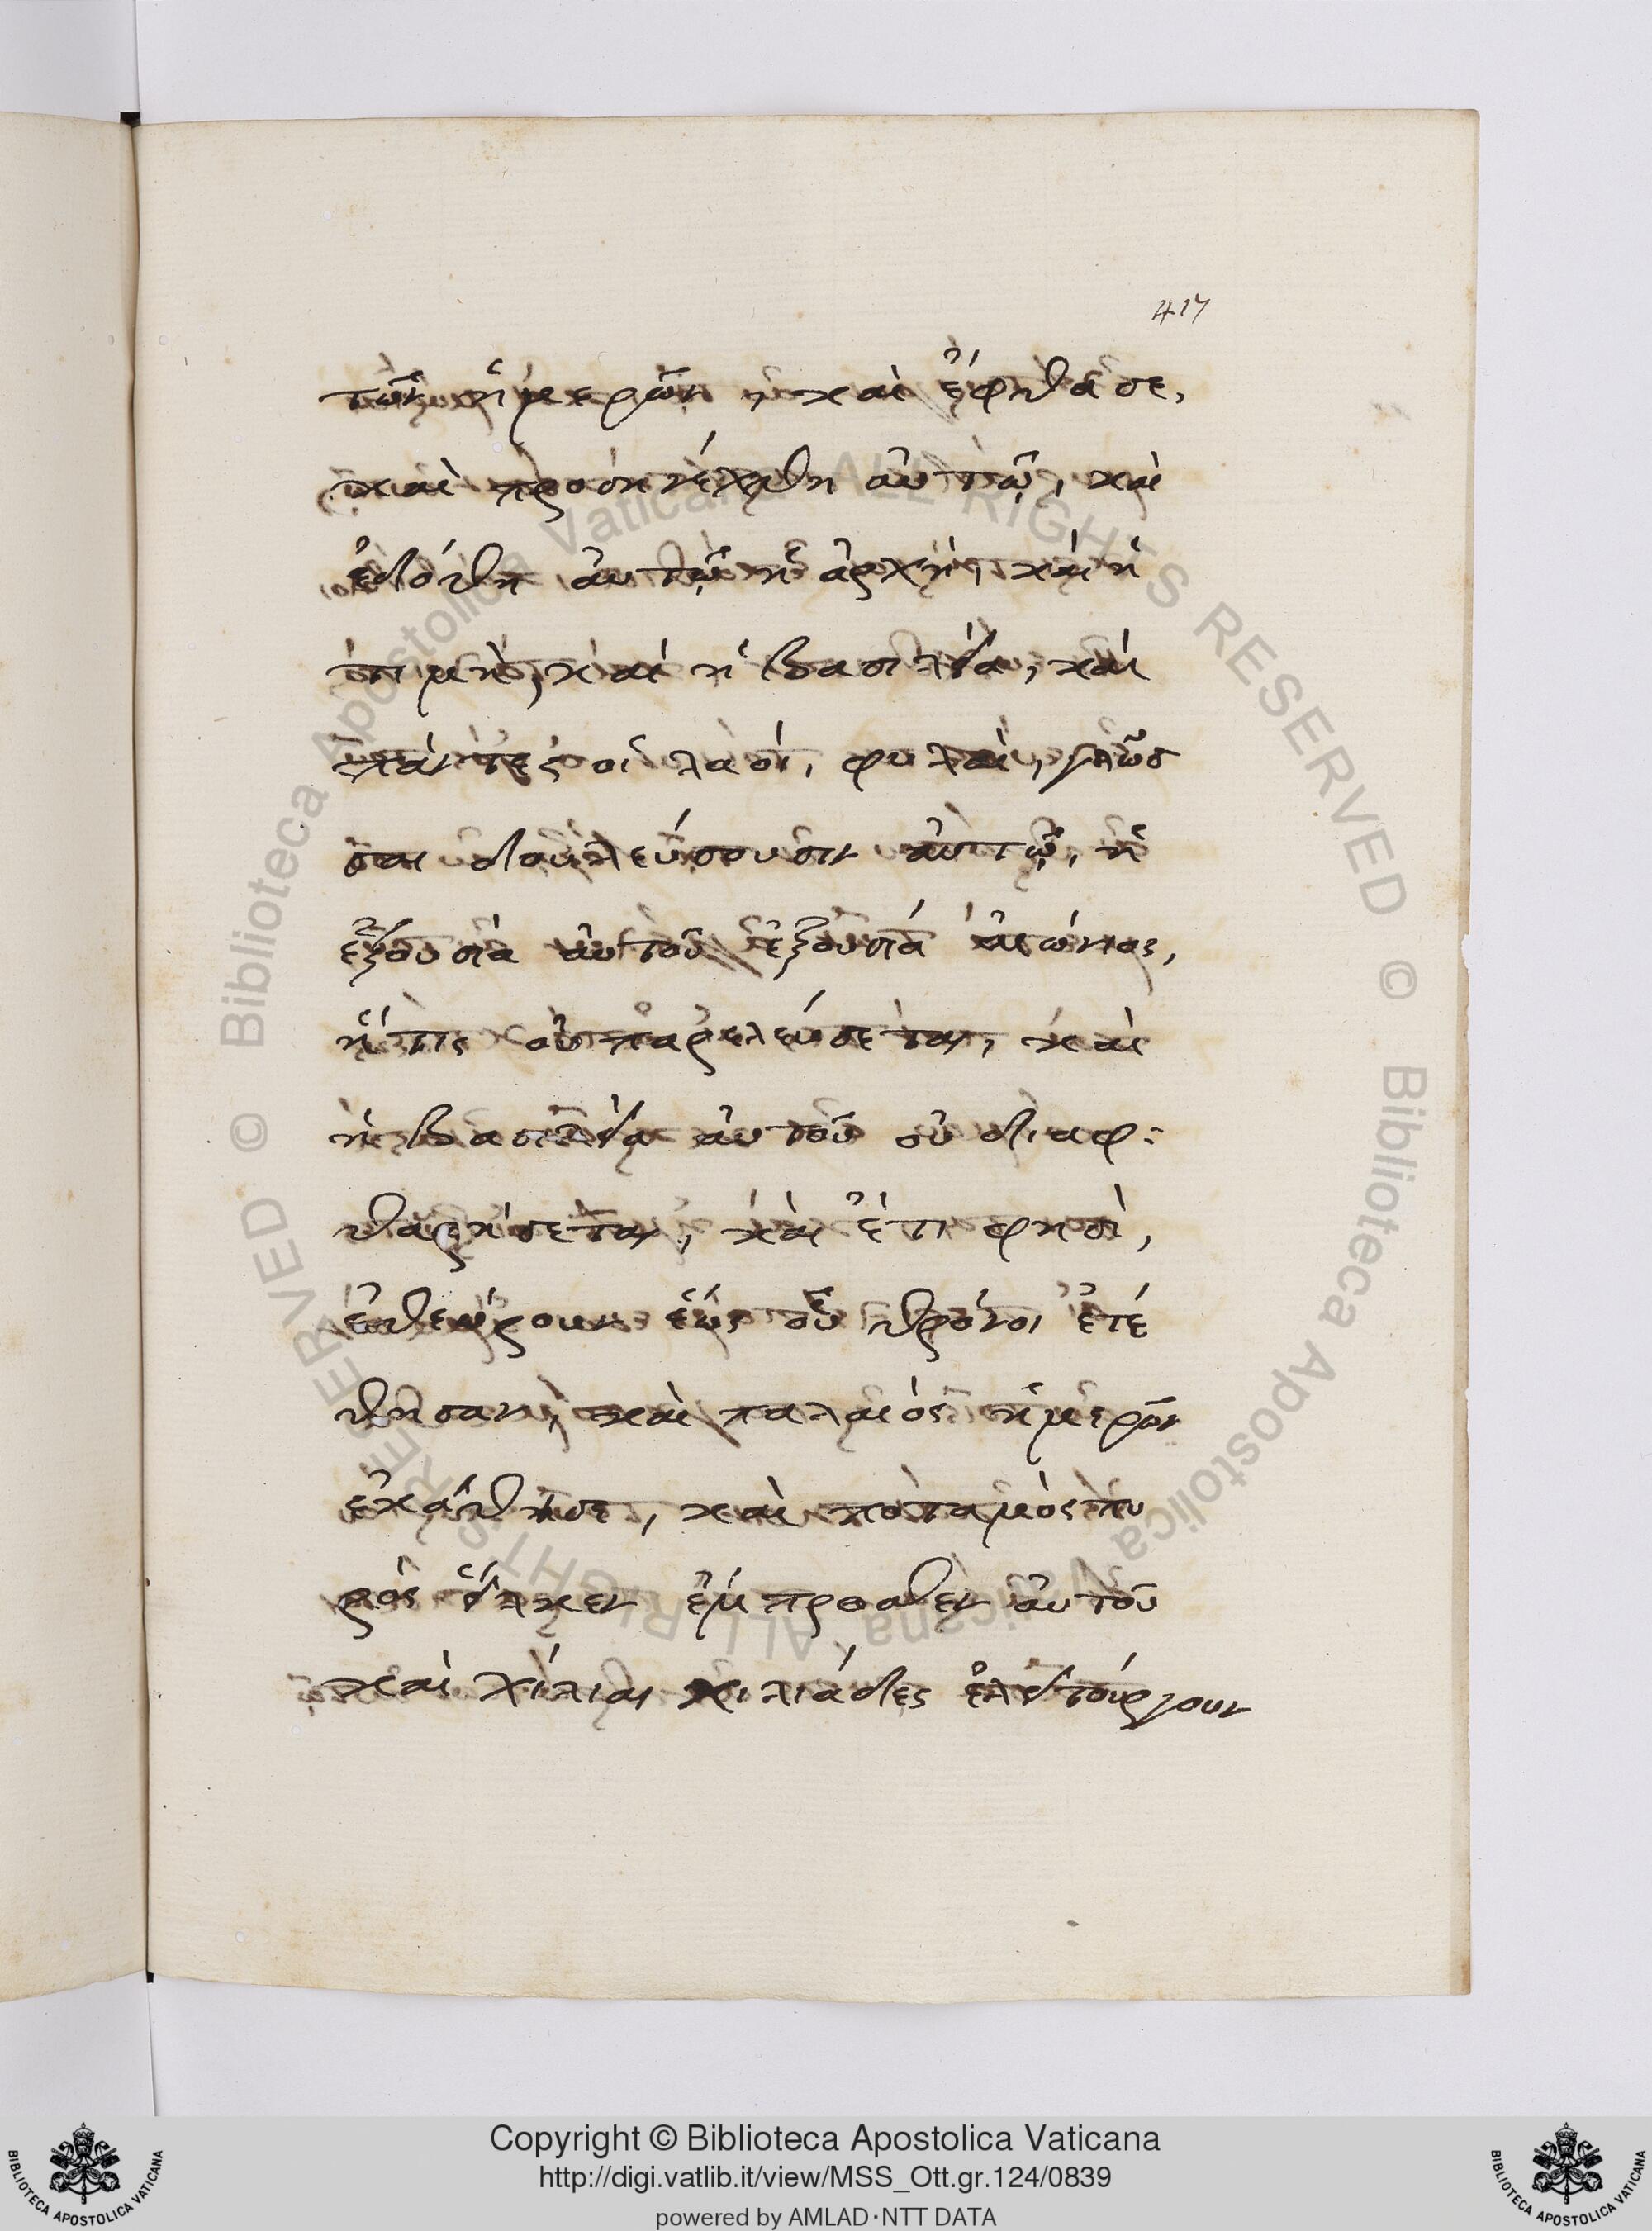 417
τῶν ἡμερῶν, καὶ ἔφθασε,
καὶ προσηνέχθη αὐτῷ, καὶ
ἐδόθη αὐτῷ ἡ ἀρχὴ, καὶ ἡ
τιμὴ, καὶ ἡ βασιλεία, καὶ
πάντες οἱ λαοί, φυλαὶ, γλῶσ
σαι δουλεύσουσιν αὐτῷ, ἡ
ἐξουσία αὐτοῦ ἐξουσία αἰώνιος,
ἥτις οὐ παρελεύσεται, καὶ
ἡ βασιλεία αὐτοῦ οὐ διαφ:
θαρήσεται, καὶ ἔτι φησὶ,
ἐθεώρουν ἕως οὗ θρόνοι ἐτέ
θησαν, καὶ παλαιὸς ἡμερῶν
ἐκάθησε, καὶ ποταμὸς πυ
ρὸς εἷλκεν ἔμπροσθεν αὐτοῦ
καὶ χίλιαι χιλιάδες ἐλειτούργουν
© Biblioteca Apostolica Vaticana ALL RIGHTS RESERVED © Biblioteca Apostolica Vaticana ALL RIGHTS RESERVED
Copyright © Biblioteca Apostolica Vaticana
http://digi.vatlib.it/view/MSS_Ott.gr.124/0839
powered by AMLAD·NTT DATA
BIBLIOTECA APOSTOLICA VATICANA
BIBLIOTECA APOSTOLICA VATICANA